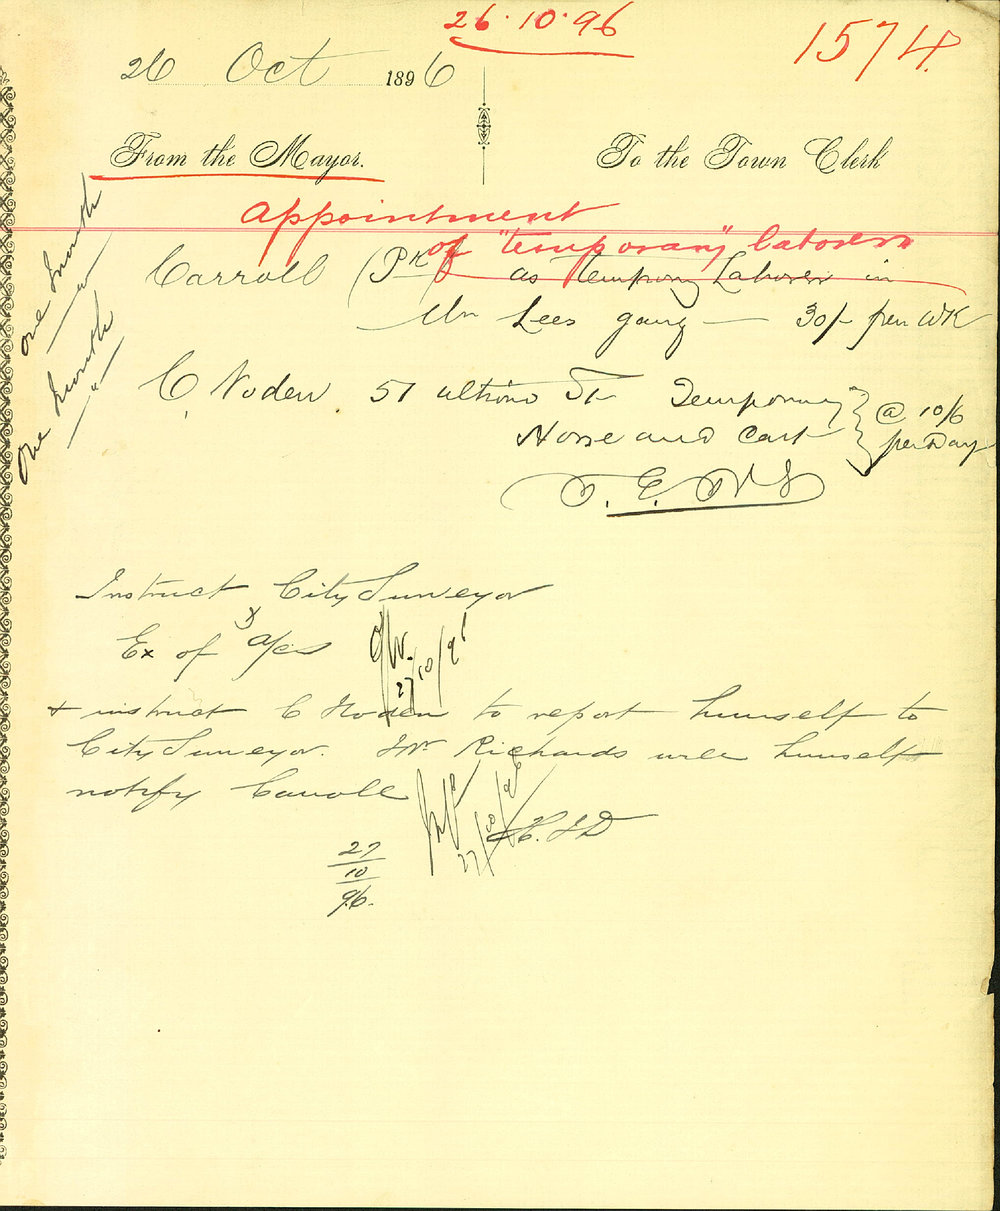 26.10.96
1574.
26 Oct 1896
From the Mayor.
To the Town Clerk
Appointment
of "temporary" laborers
Carroll (Pk) as Temporary Laborer in
Mr Lees gang — 30/- per WK
one month
C Noden 51 St Temporary
Horse and Cart
@ 10/6
per Day
one month
Instruct City Surveyor
Ex of a/cs
27/10/96
+ instruct C Noden to report himself to
City Surveyor. Mr Richards will himself
notify Carroll
27/10/96
27
10
96.